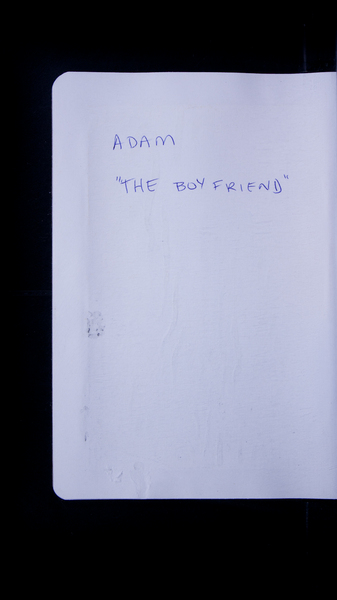 ADAM
"THE BOYFRIEND"